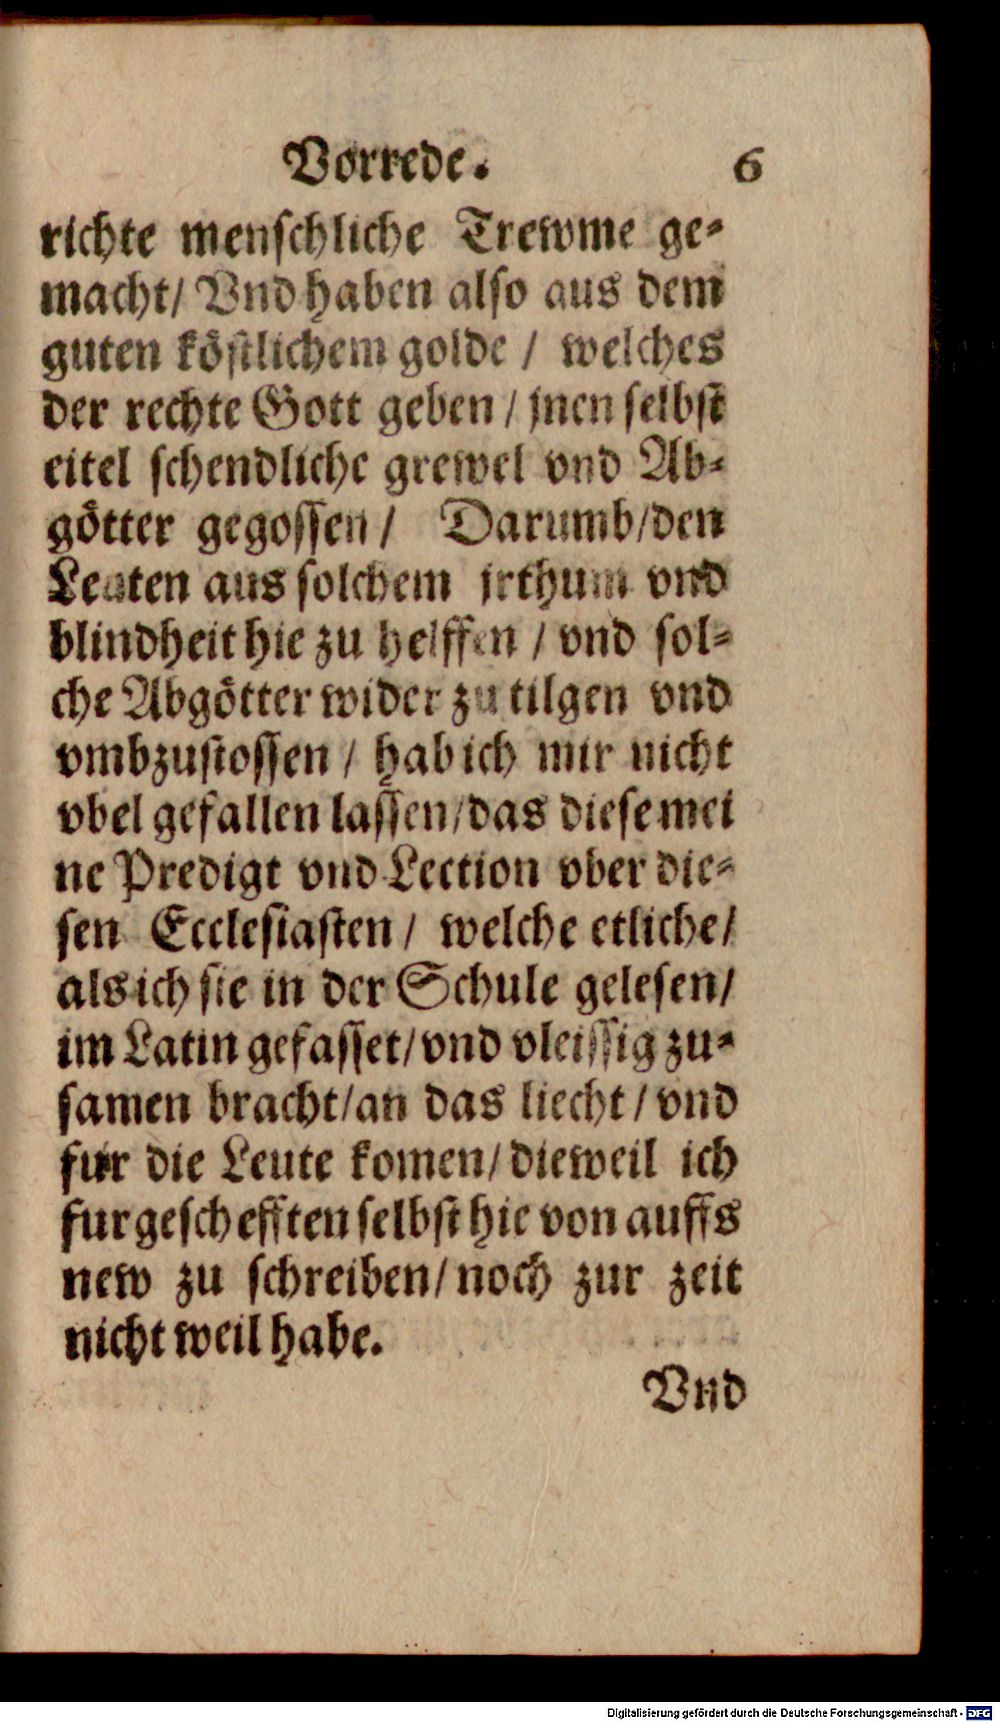 Vorrede. 6
richte menschliche Trewme ge-
macht/ Vnd haben also aus dem
guten köstlichem golde / welches
der rechte Gott geben / jnen selbst
eitel schendliche grewel vnd Ab-
götter gegossen / Darumb/den
Leuten aus solchem jrthum vnd
blindheit hie zu helffen / vnd sol-
che Abgötter wider zu tilgen vnd
vmbzustossen / hab ich mir nicht
vbel gefallen lassen/das diese mei
ne Predigt vnd Lection vber die-
sen Ecclesiasten / welche etliche/
als ich sie in der Schule gelesen/
im Latin gefasset/vnd vleissig zu-
samen bracht/an das liecht / vnd
fur die Leute komen/dieweil ich
fur geschefften selbst hie von auffs
new zu schreiben/noch zur zeit
nicht weil habe.
Vnd
Digitalisierung gefördert durch die Deutsche Forschungsgemeinschaft - DFG